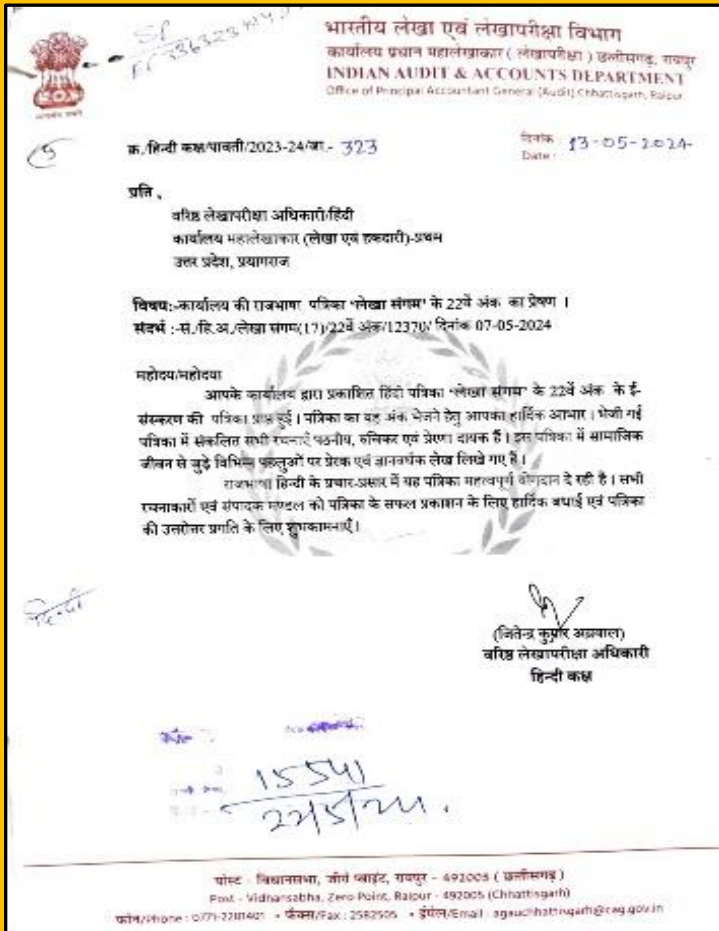 भारतीय लेखा एवं लेखापरीक्षा विभाग
कार्यालय प्रधान महालेखाकार ( लेखापरीक्षा ) छत्तीसगढ़, रायपुर
INDIAN AUDIT & ACCOUNTS DEPARTMENT
Office of Principal Accountant General (Audit) Chhattisgarh, Raipur
क्र./हिन्दी कक्ष/पावती/2023-24/जा.- 323
दिनांक
Date : 13-05-2024
प्रति ,
वरिष्ठ लेखापरीक्षा अधिकारी/हिंदी
कार्यालय महालेखाकार (लेखा एवं हकदारी)-प्रथम
उत्तर प्रदेश, प्रयागराज
विषय:-कार्यालय की राजभाषा पत्रिका "लेखा संगम" के 22वें अंक का प्रेषण ।
संदर्भ :-सं./हि.अ./लेखा संगम(17)/22वें अंक/12370/ दिनांक 07-05-2024
महोदय/महोदया
आपके कार्यालय द्वारा प्रकाशित हिंदी पत्रिका "लेखा संगम" के 22वें अंक के ई-
संस्करण की पत्रिका प्राप्त हुई। पत्रिका का यह अंक भेजने हेतु आपका हार्दिक आभार। भेजी गई
पत्रिका में संकलित सभी रचनाएँ पठनीय, रुचिकर एवं प्रेरणा दायक हैं। इस पत्रिका में सामाजिक
जीवन से जुड़े विभिन्न पहलुओं पर प्रेरक एवं ज्ञानवर्धक लेख लिखे गए हैं।
राजभाषा हिन्दी के प्रचार-प्रसार में यह पत्रिका महत्वपूर्ण योगदान दे रही है। सभी
रचनाकारों एवं संपादक मण्डल को पत्रिका के सफल प्रकाशन के लिए हार्दिक बधाई एवं पत्रिका
की उत्तरोत्तर प्रगति के लिए शुभकामनाएँ।
हिन्दी
(जितेन्द्र कुमार अग्रवाल)
वरिष्ठ लेखापरीक्षा अधिकारी
हिन्दी कक्ष
15541
22/5/24
पोस्ट - विधानसभा, जीरो प्वाइंट, रायपुर - 492005 ( छत्तीसगढ़ )
Post - Vidhansabha, Zero Point, Raipur - 492005 (Chhattisgarh)
फोन/Phone : 0771-2281401 • फैक्स/Fax : 2582505 • ईमेल/Email : agauchhattisgarh@cag.gov.in